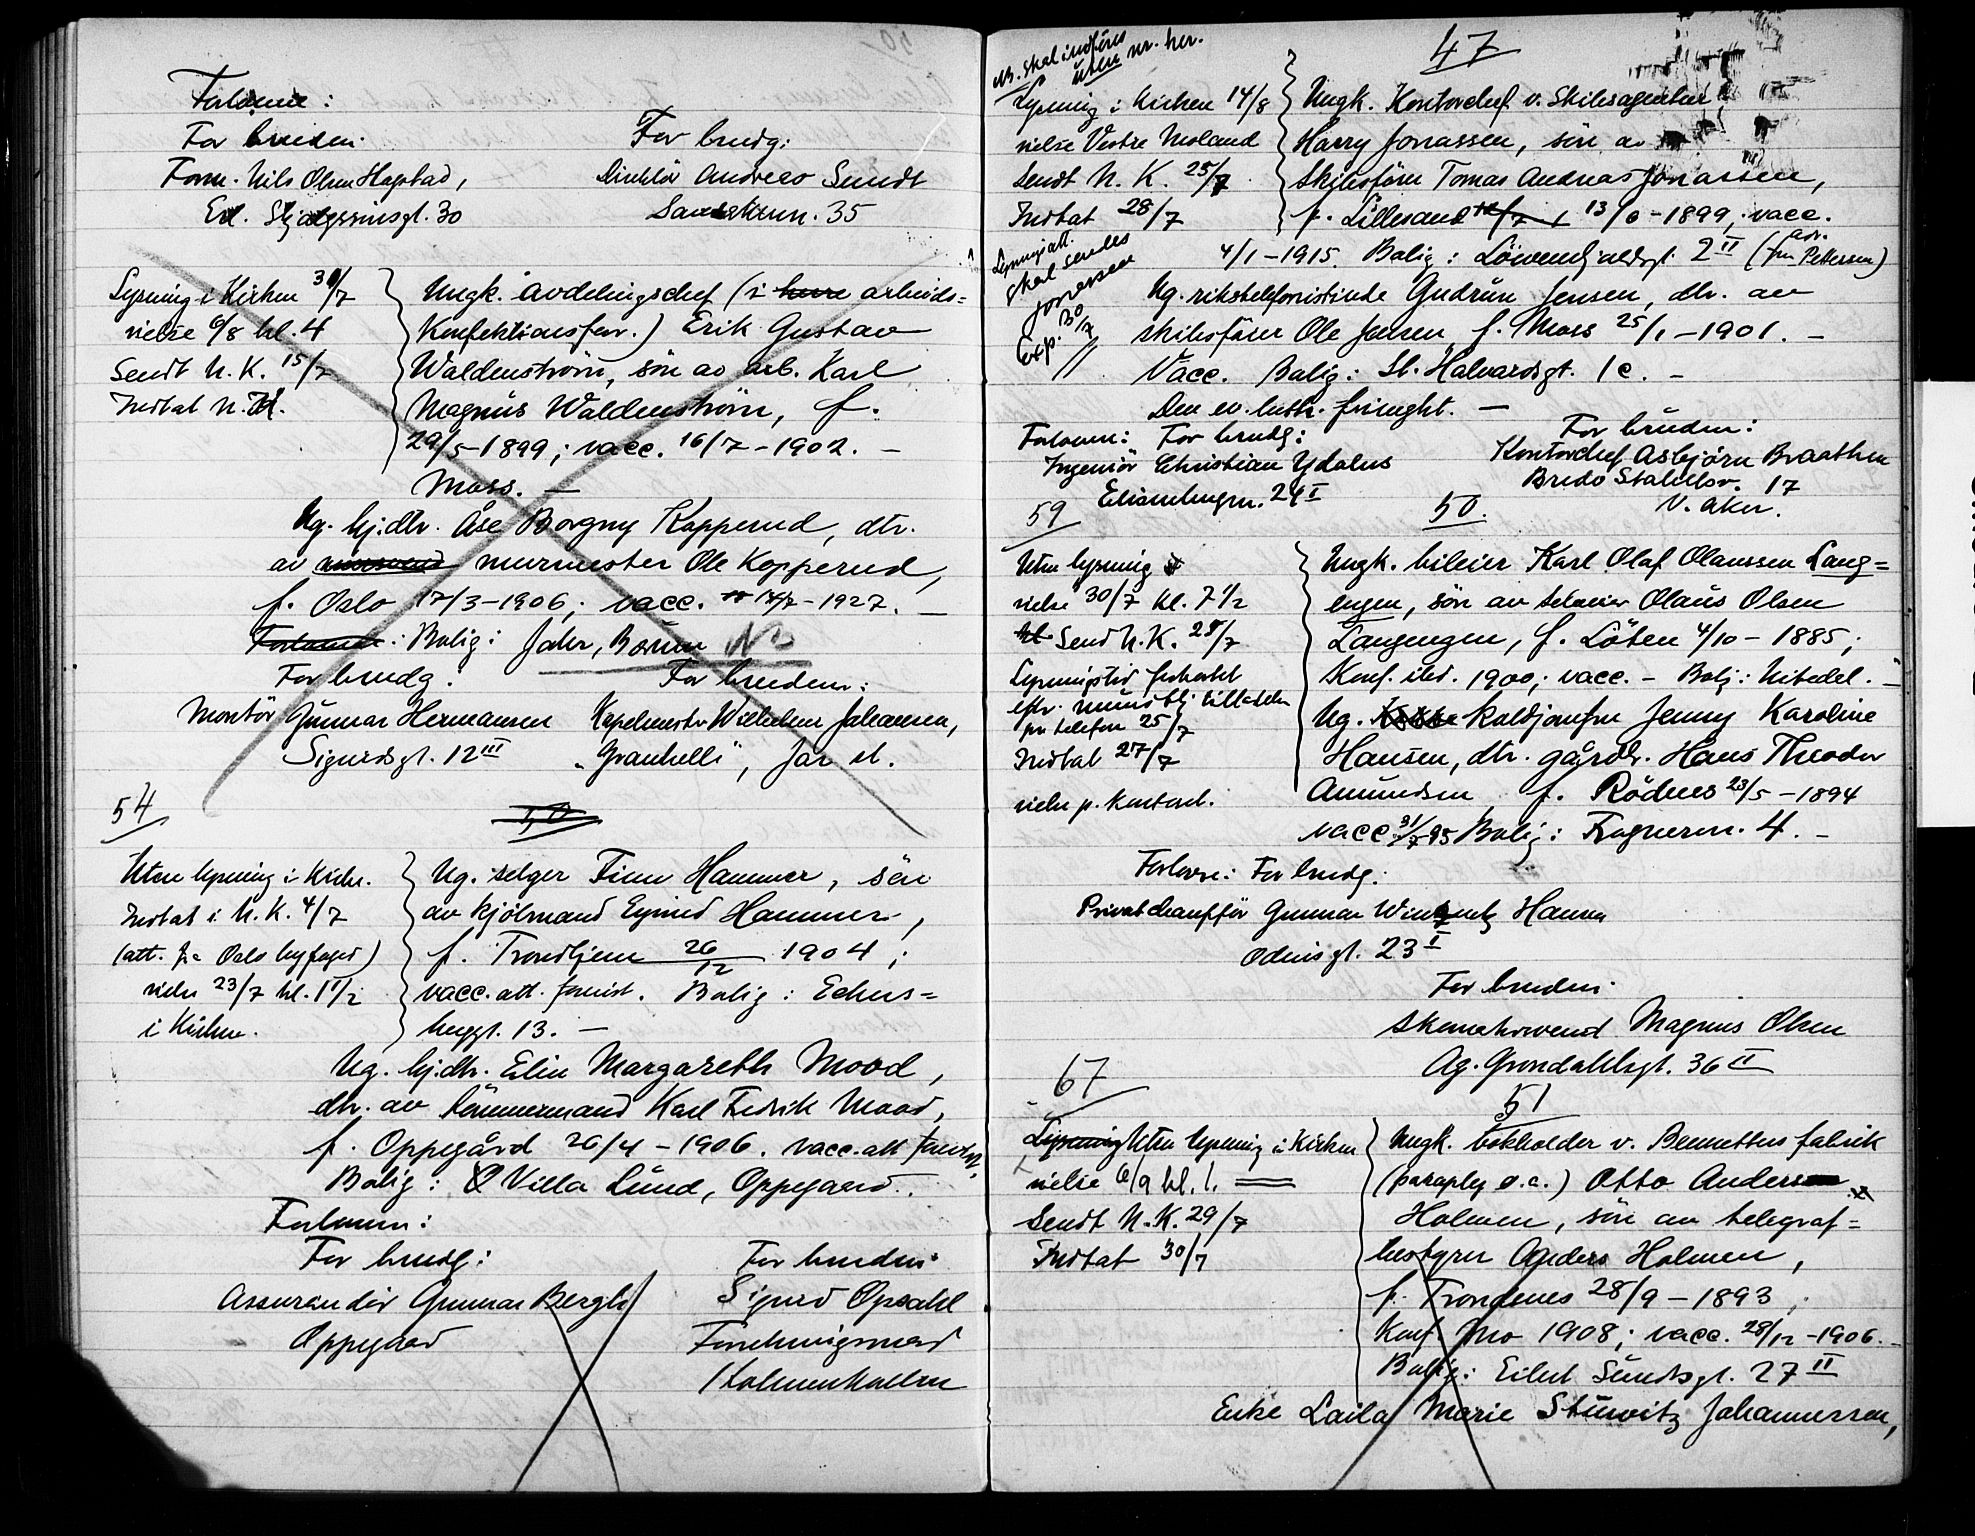 Forlovere:
For bruden: For brudg:
Form. Nils Olsen Hagstad, Direktör Andreas Sundt
Ed. 30 35
Lysning i Kirken 31/7 Ungk. avdelingschef (i herre arbeids=
vielse 6/8 kl. 4 Konfektionsforr.) Erik Gustav
Sendt N. K. 15/7 Waldenström, sön av arb. Karl
Indbet N. K. Magnus Waldenström, f.
29/5-1899; vacc. 16/7-1902. –
Moss. –
Ug. hj.dtr. Åse Borgny Kopperud, dtr.
av murmester Ole Kopperud,
f. Oslo 17/3-1906; vacc. 14/7-1927. –
Forlovere: Bolig: Jahr, Bærum NB
For brudg. For bruden:
Montör Gunnar Hermansen Kapelmester Wilhelm Johansen,
Sigurdsgt. 12 III "Granhelli", Jar st.
54 50
Uten lysning i Kirke. Ug. selger Finn Hammer, sön
Indbet i N. K. 4/7 av kjölmand Eyvind Hammer,
(att. fra Oslo byfoged) f. Trondhjem 26/12 1904;
vielse 23/7 kl. 1 1/2 vacc. att. forevist. Bolig: Eckers=
i Kirken. berggt. 13. –
Ug. hj.dtr. Elin Margareth Mood,
dtr. av tömmermand Karl Fredrik Mood,
f. Oppegård 26/4-1906. vacc. att forevist.
Bolig: Villa Lund, Oppegaard.
Forlovere:
For brudg: For bruden:
Assurandör Gunnar Bergh Sigurd Opsahl
Oppegaard Forretningsmand
Holmenkollen
NB. Skal indföres
uten nr. her. 47
Lysning i Kirken 14/8 Ungk. Kontorchef v. Skibsagentur
vielse Vestre Moland Harry Jonassen, sön av
Sendt N. K. 25/7 Skibsförer Tomas Andreas Jonassen,
Indbet 28/7 f. Lillesand 13/6-1899; vacc.
Lysningsatt. 4/1-1915. Bolig: Löwenskioldsgt. 2 II (adr. fru Pettersen)
skal sendes Ug. rikstelefonistinde Gudrun Jensen, dtr. av
Jonassen skibsförer Ole Jensen, f. Moss 25/1-1901. –
Exp. 30/7 Vacc. Bolig: St. Halvardsgt. 1c. –
Den ev. luth. frimght. –
Forlovere: For brudg: For bruden:
Ingeniör Christian Ydalus Kontorchef Asbjörn Braathen
24 I Bredo Stabells v. 17
59 50. V. Aker.
Uten lysning Ungk. bileier Karl Olaf Olaussen Lang=
vielse 30/7 kl. 7 1/2 engen, sön av selveier Olaus Olsen
Send N. K. 25/7 Langengen, f. Löten 4/10-1885;
Lysningstid forkortet Konf. ibid. 1900; vacc. – Bolig: Nitedal. –
eftr. muntlig tillatelse Ug. koldjomfru Jenny Karoline
pr. telefon 25/7
Indbet 27/7 Hansen, dtr. gårdbr. Hans Theodor
vielse p. kontoret. Amundsen f. Rödnes 23/5-1894
vacc 31/7 95 Bolig: Frognerv. 4. –
Forlovere: For brudg:
Privatchafför Gunnar Hansen
Odinsgt. 23 I
For bruden:
Skomakersvend Magnus Olsen
Ag. Gröndahlsgt. 36 II
67 51
Lysning Uten lysning i Kirken Ungk. bokholder v. Bennettus fabrik
vielse 6/9 kl. 1. (paraply o. a.) Otto Andersen
Sendt N. K. 29/7 Holmen, sön av telegraf=
Indbet 30/7 bestyrer Anders Holmen,
f. Trondenes 28/9-1893;
Konf. Mo 1908; vacc. 28/12-1906.
Bolig: Eilert Sundtsgt. 27 II
Enke Laila Marie Sturwitz Johannessen,